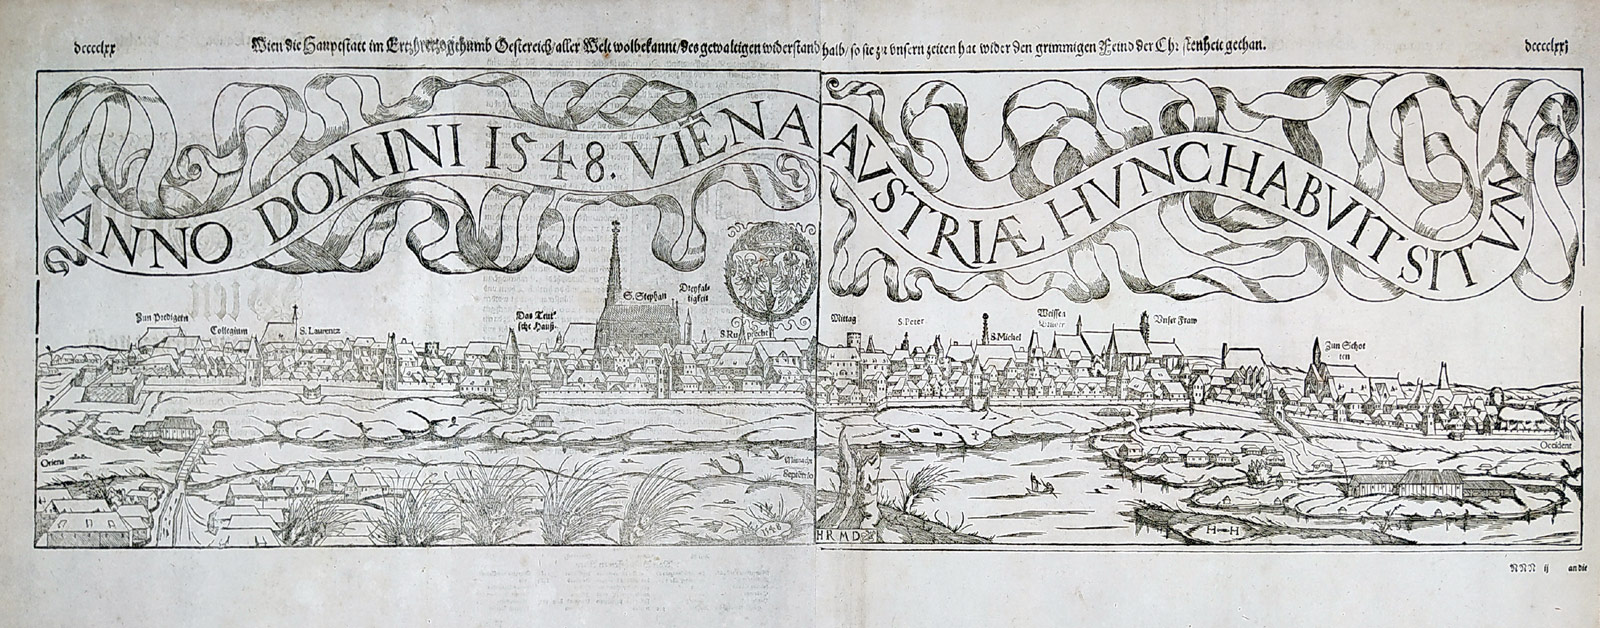 dcccclxx
Wien die Hauptstatt im Ertzhertzogthumb Oesterreich/aller Welt wolbekannt/des gewaltigen widerstand halb/so sie zu vnsern zeiten hat wider den grimmigen Feind der Christenheit gethan.
dcccclxxj
ANNO DOMINI 1548. VIĒNA AVSTRIÆ HVNC HABVIT SITVM
Zun Predigern
Collegium
S. Laurentz
Das Teut
sche Hauß
S. Stephan
Dreyfal-
tigkeit
S. Ruprecht
Mittag
S. Peter
S. Michel
Weissen
Vnser Fraw
Zun Schot
ten
Orient
Mitnacht
Septētrio
Occident
1548
HRMD
H H
NNN ij
an die